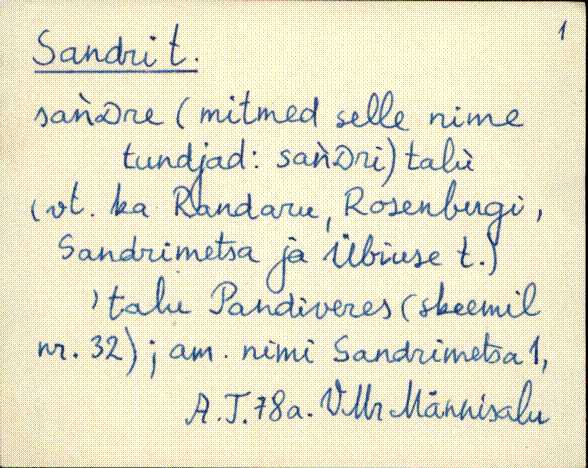 1
Sandri t.
sań̀Dre (mitmed selle nime
tundjad: sań̀Dri) talù
(vt. ka Randaru, Rosenbergi,
Sandrimetsa ja Übiuse t.)
'talu Pandiveres (skeemil
nr. 32); am. nimi Sandrimetsa 1,
A.J. 78a. VMr Männisalu